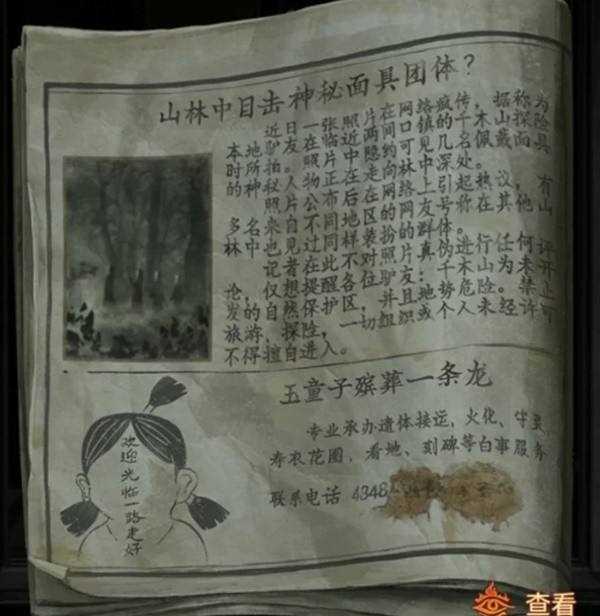 山林中目击神秘面具团体？
近日一张照片在网络疯传，据称为
本地驴友在临近两间口镇的千木山探险
时所拍。照片中隐约可见几名佩戴面具
的神秘人物正在走向林中深处。
照片公布后在网络上引起热议，有
多名来自不同地区的网友号称在其他山
林中也见过同样装扮的群体。
记者不对照片真伪进行任何评
论，仅想在此提醒各位驴友：千木山为未开
发的自然保护区，并且地势危险。禁止
旅游，探险，一切组织或个人未经许可
不得擅自进入。
五童子殡葬一条龙
专业承办遗体接运，火化、守灵
寿衣花圈，看地、刻碑等白事服务
联系电话 4348
欢迎光临一路走好
查看